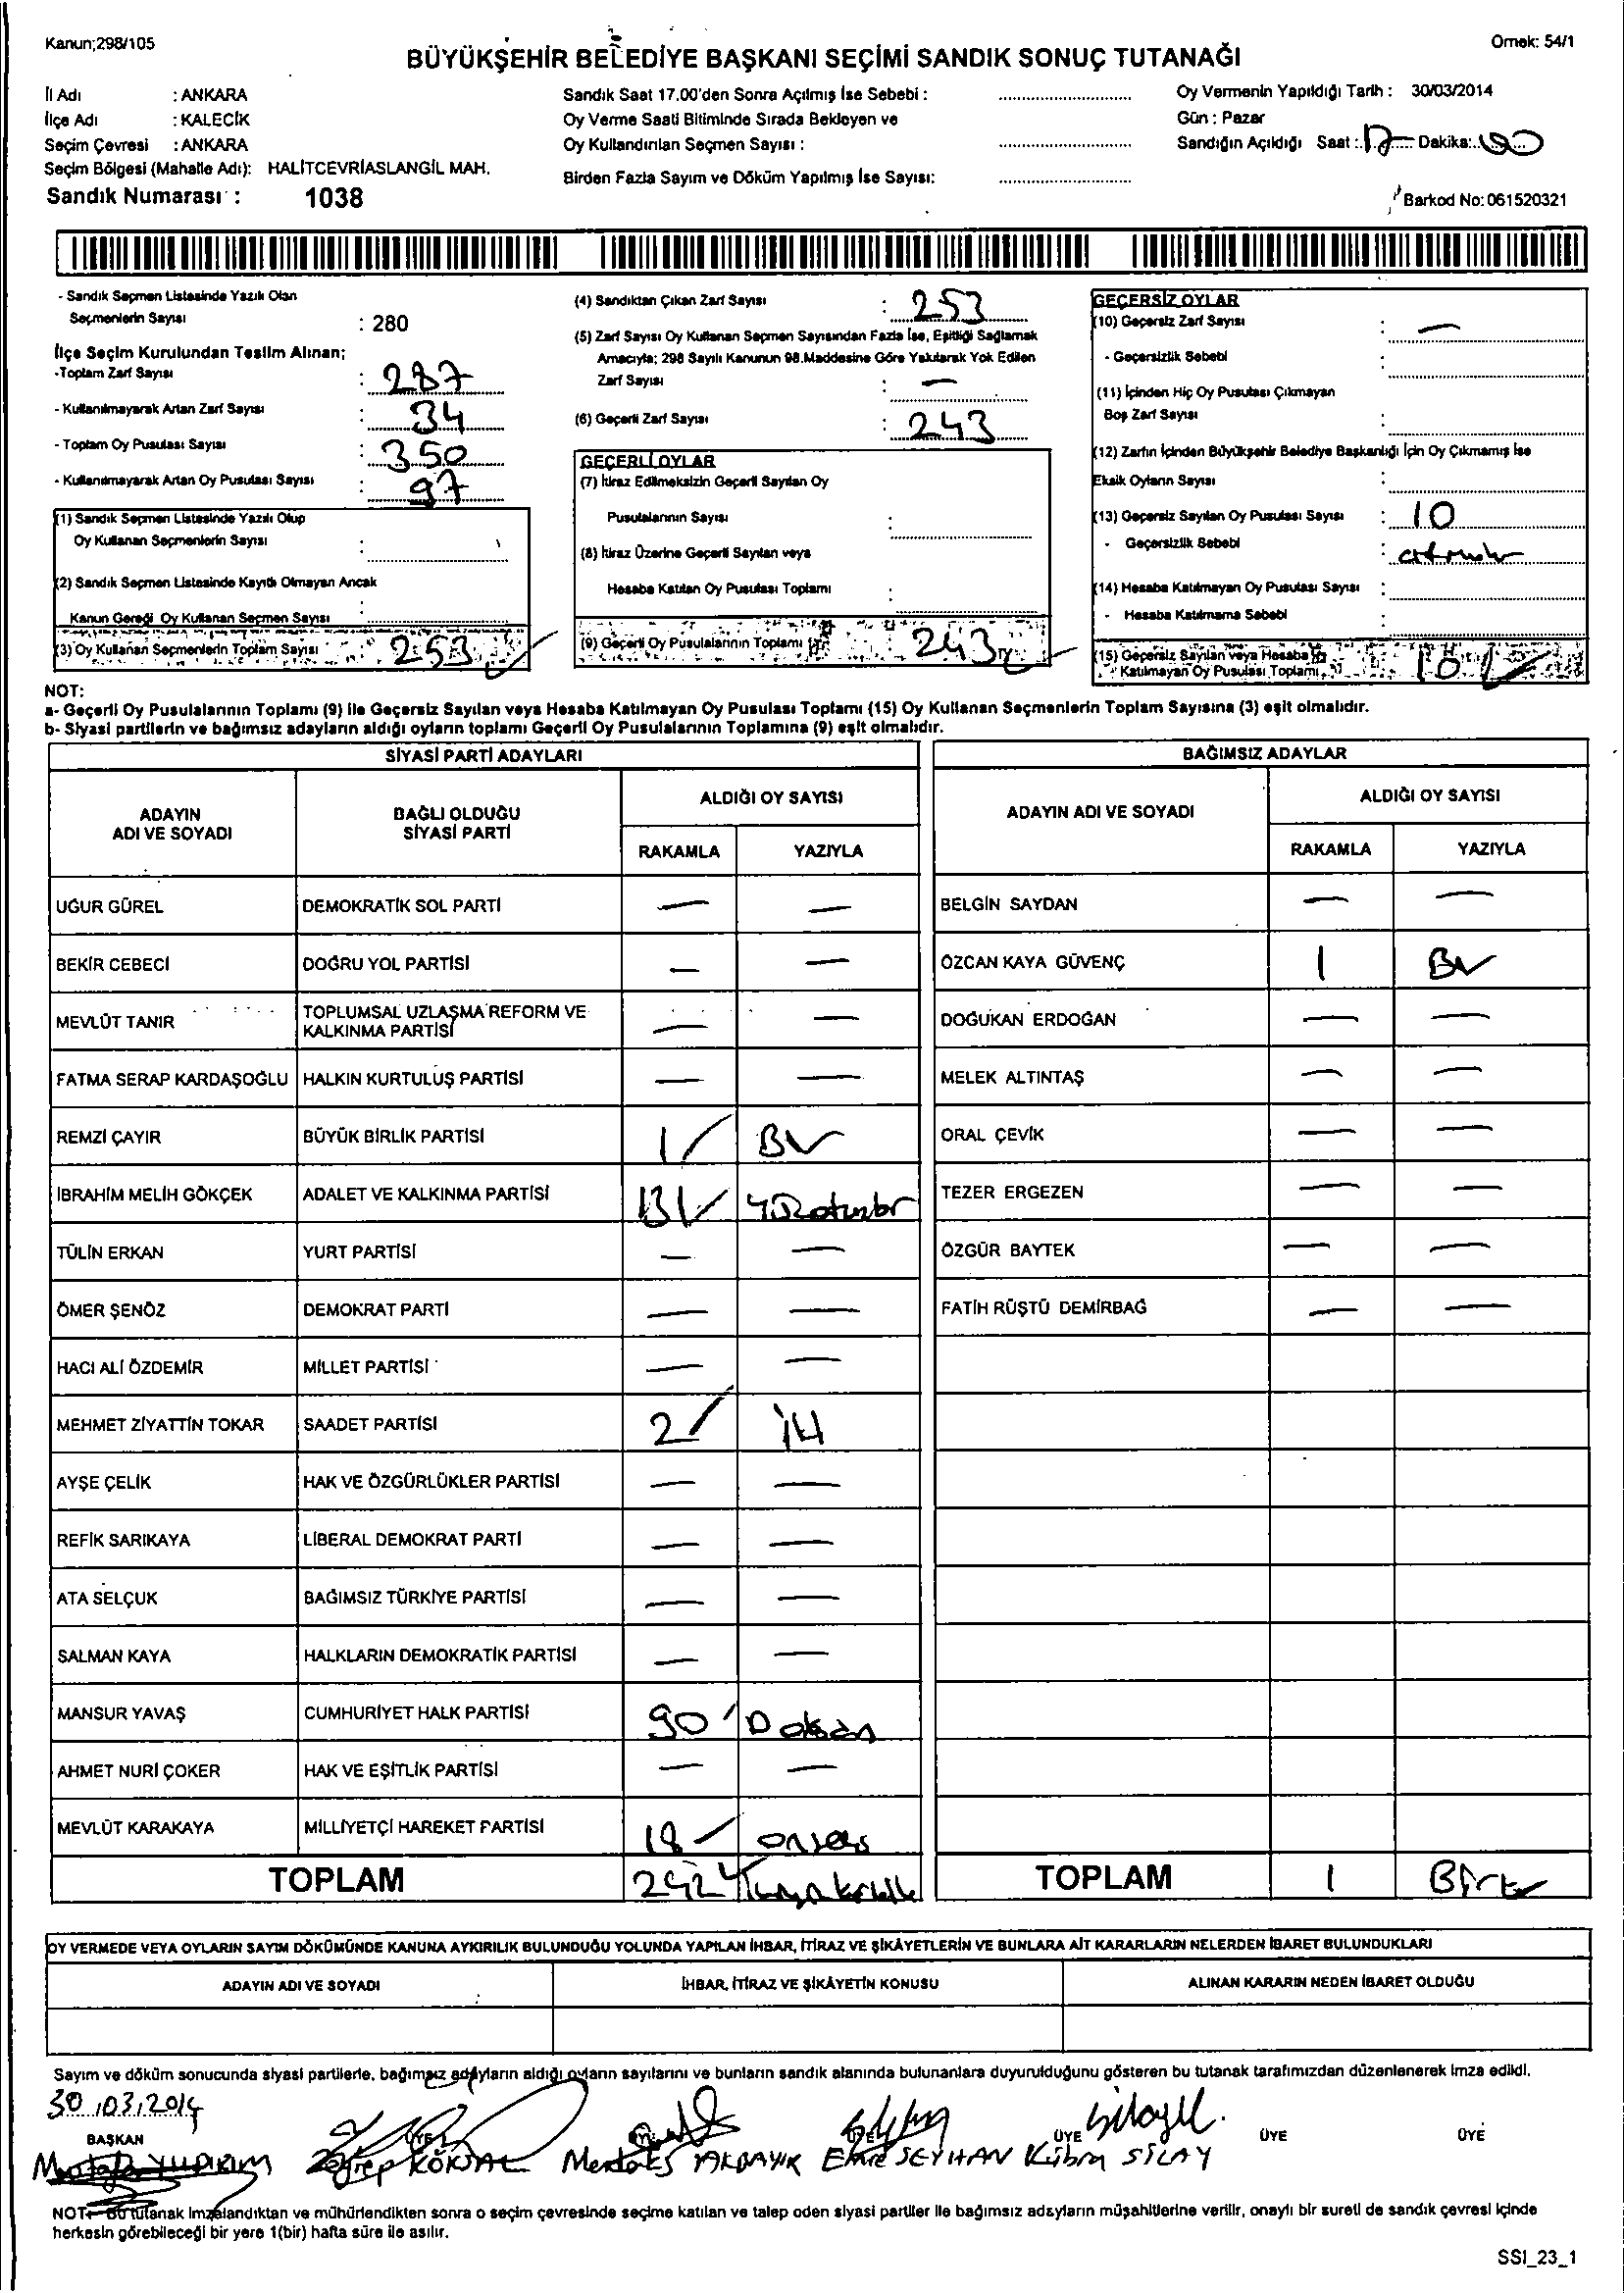 Kanun;298/105
Örnek: 54/1
BÜYÜKŞEHİR BELEDİYE BAŞKANI SEÇİMİ SANDIK SONUÇ TUTANAĞI
İl Adı : ANKARA
İlçe Adı : KALECİK
Seçim Çevresi : ANKARA
Seçim Bölgesi (Mahalle Adı): HALİTCEVRİASLANGİL MAH.
Sandık Numarası : 1038
Sandık Saat 17.00'den Sonra Açılmış İse Sebebi :
Oy Verme Saati Bitiminde Sırada Bekleyen ve
Oy Kullandırılan Seçmen Sayısı :
Birden Fazla Sayım ve Döküm Yapılmış İse Sayısı:
Oy Vermenin Yapıldığı Tarih : 30/03/2014
Gün : Pazar
Sandığın Açıldığı Saat : 17 Dakika: 00
Barkod No: 061520321
- Sandık Seçmen Listesinde Yazılı Olan
Seçmenlerin Sayısı : 280
İlçe Seçim Kurulundan Teslim Alınan;
-Toplam Zarf Sayısı : 287
- Kullanılmayarak Artan Zarf Sayısı : 34
- Toplam Oy Pusulası Sayısı : 350
- Kullanılmayarak Artan Oy Pusulası Sayısı : 97
(1) Sandık Seçmen Listesinde Yazılı Olup
Oy Kullanan Seçmenlerin Sayısı :
(2) Sandık Seçmen Listesinde Kayıtlı Olmayan Ancak
Kanun Gereği Oy Kullanan Seçmen Sayısı :
(3) Oy Kullanan Seçmenlerin Toplam Sayısı : 253
(4) Sandıktan Çıkan Zarf Sayısı : 253
(5) Zarf Sayısı Oy Kullanan Seçmen Sayısından Fazla İse, Eşitliği Sağlamak
Amacıyla; 298 Sayılı Kanunun 98.Maddesine Göre Yakılarak Yok Edilen
Zarf Sayısı : —
(6) Geçerli Zarf Sayısı : 243
GEÇERLİ OYLAR
(7) İtiraz Edilmeksizin Geçerli Sayılan Oy
Pusulalarının Sayısı :
(8) İtiraz Üzerine Geçerli Sayılan veya
Hesaba Katılan Oy Pusulası Toplamı :
(9) Geçerli Oy Pusulalarının Toplamı 243
GEÇERSİZ OYLAR
(10) Geçersiz Zarf Sayısı : —
- Geçersizlik Sebebi :
(11) İçinden Hiç Oy Pusulası Çıkmayan
Boş Zarf Sayısı :
(12) Zarfın İçinden Büyükşehir Belediye Başkanlığı İçin Oy Çıkmamış İse
Eksik Oyların Sayısı :
(13) Geçersiz Sayılan Oy Pusulası Sayısı : 10
- Geçersizlik Sebebi :
(14) Hesaba Katılmayan Oy Pusulası Sayısı :
- Hesaba Katılmama Sebebi :
(15) Geçersiz Sayılan veya Hesaba
Katılmayan Oy Pusulası Toplamı 10
NOT:
a- Geçerli Oy Pusulalarının Toplamı (9) ile Geçersiz Sayılan veya Hesaba Katılmayan Oy Pusulası Toplamı (15) Oy Kullanan Seçmenlerin Toplam Sayısına (3) eşit olmalıdır.
b- Siyasi partilerin ve bağımsız adayların aldığı oyların toplamı Geçerli Oy Pusulalarının Toplamına (9) eşit olmalıdır.
SİYASİ PARTİ ADAYLARI
ADAYIN ADI VE SOYADI
BAĞLI OLDUĞU SİYASİ PARTİ
ALDIĞI OY SAYISI
RAKAMLA YAZIYLA
UĞUR GÜREL DEMOKRATİK SOL PARTİ — —
BEKİR CEBECİ DOĞRU YOL PARTİSİ — —
MEVLÜT TANIR TOPLUMSAL UZLAŞMA REFORM VE KALKINMA PARTİSİ — —
FATMA SERAP KARDAŞOĞLU HALKIN KURTULUŞ PARTİSİ — —
REMZİ ÇAYIR BÜYÜK BİRLİK PARTİSİ 1 Bir
İBRAHİM MELİH GÖKÇEK ADALET VE KALKINMA PARTİSİ 131 Yüzotuzbir
TÜLİN ERKAN YURT PARTİSİ — —
ÖMER ŞENÖZ DEMOKRAT PARTİ — —
HACI ALİ ÖZDEMİR MİLLET PARTİSİ — —
MEHMET ZİYATTİN TOKAR SAADET PARTİSİ 2 iki
AYŞE ÇELİK HAK VE ÖZGÜRLÜKLER PARTİSİ — —
REFİK SARIKAYA LİBERAL DEMOKRAT PARTİ — —
ATA SELÇUK BAĞIMSIZ TÜRKİYE PARTİSİ — —
SALMAN KAYA HALKLARIN DEMOKRATİK PARTİSİ — —
MANSUR YAVAŞ CUMHURİYET HALK PARTİSİ 90 Doksan
AHMET NURİ ÇOKER HAK VE EŞİTLİK PARTİSİ — —
MEVLÜT KARAKAYA MİLLİYETÇİ HAREKET PARTİSİ 18 onsekiz
TOPLAM 242
BAĞIMSIZ ADAYLAR
ADAYIN ADI VE SOYADI
ALDIĞI OY SAYISI
RAKAMLA YAZIYLA
BELGİN SAYDAN — —
ÖZCAN KAYA GÜVENÇ 1 Bir
DOĞUKAN ERDOĞAN — —
MELEK ALTINTAŞ — —
ORAL ÇEVİK — —
TEZER ERGEZEN — —
ÖZGÜR BAYTEK — —
FATİH RÜŞTÜ DEMİRBAĞ — —
TOPLAM 1
OY VERMEDE VEYA OYLARIN SAYIM DÖKÜMÜNDE KANUNA AYKIRILIK BULUNDUĞU YOLUNDA YAPILAN İHBAR, İTİRAZ VE ŞİKÂYETLERİN VE BUNLARA AİT KARARLARIN NELERDEN İBARET BULUNDUKLARI
ADAYIN ADI VE SOYADI İHBAR, İTİRAZ VE ŞİKÂYETİN KONUSU ALINAN KARARIN NEDEN İBARET OLDUĞU
Sayım ve döküm sonucunda siyasi partilerle, bağımsız adayların aldığı oyların sayılarını ve bunların sandık alanında bulunanlara duyurulduğunu gösteren bu tutanak tarafımızdan düzenlenerek imza edildi.
30.03.2014
BAŞKAN ÜYE ÜYE ÜYE ÜYE ÜYE ÜYE
Mustafa YILDIRIM Zeynep KÖKSAL AKBAYIK Emre SEYHAN Kübra SILAY
NOT- Bu tutanak imzalandıktan ve mühürlendikten sonra o seçim çevresinde seçime katılan ve talep eden siyasi partiler ile bağımsız adayların müşahitlerine verilir, onaylı bir sureti de sandık çevresi içinde
herkesin görebileceği bir yere 1(bir) hafta süre ile asılır.
SSI_23_1